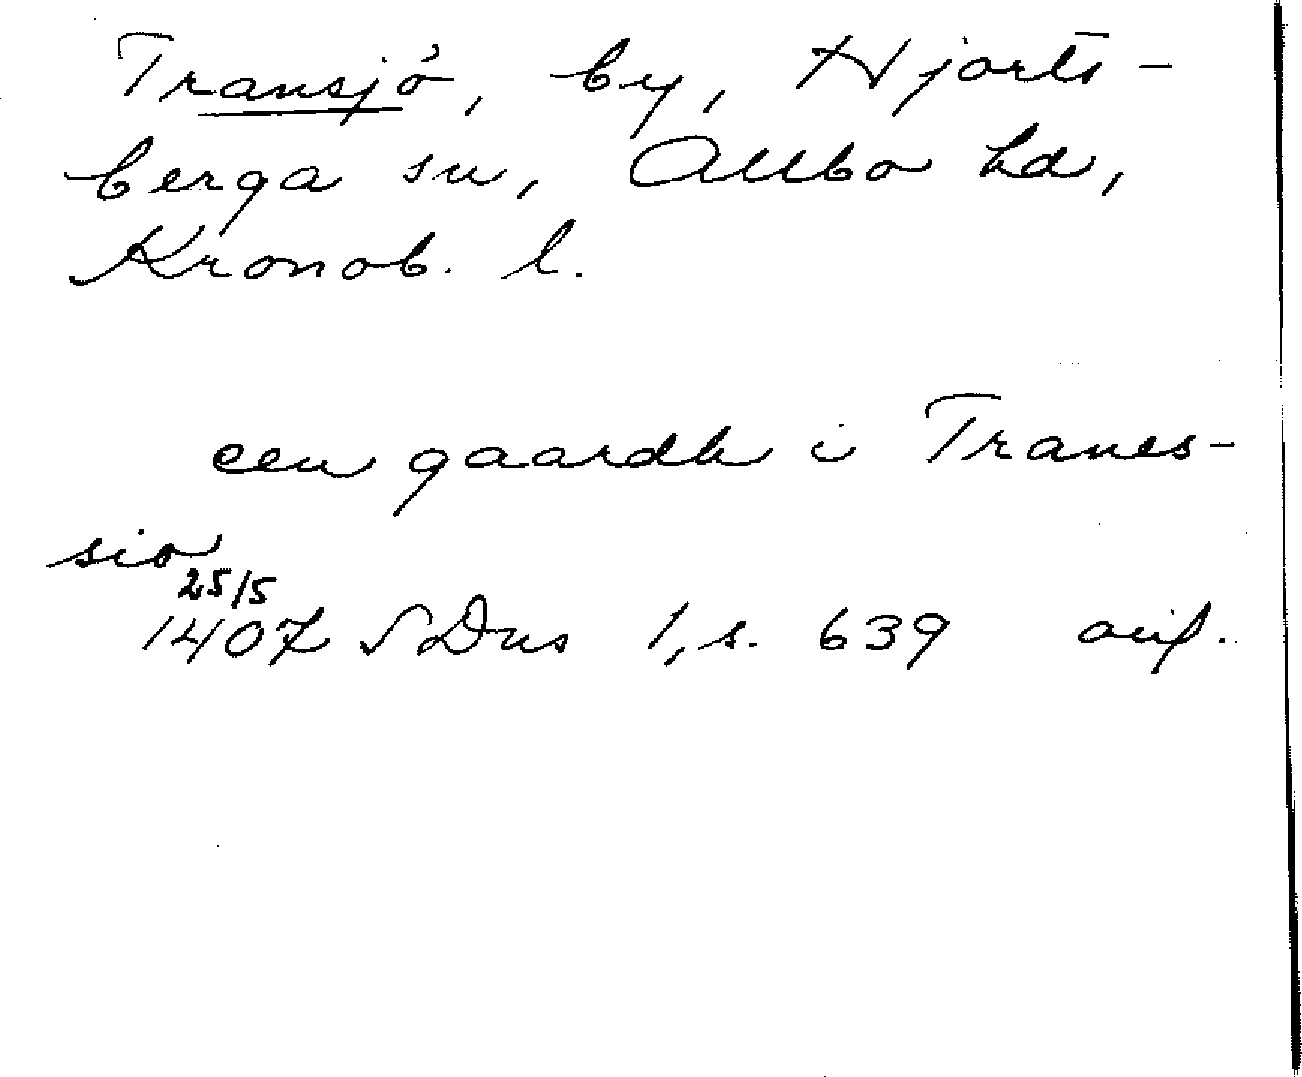 Transjö, by, Hjorts-
berga sn, Allbo hd,
Kronob. l.
een gaardh i Tranes-
sio
25/5
1407 SDns 1, s. 639 avf.